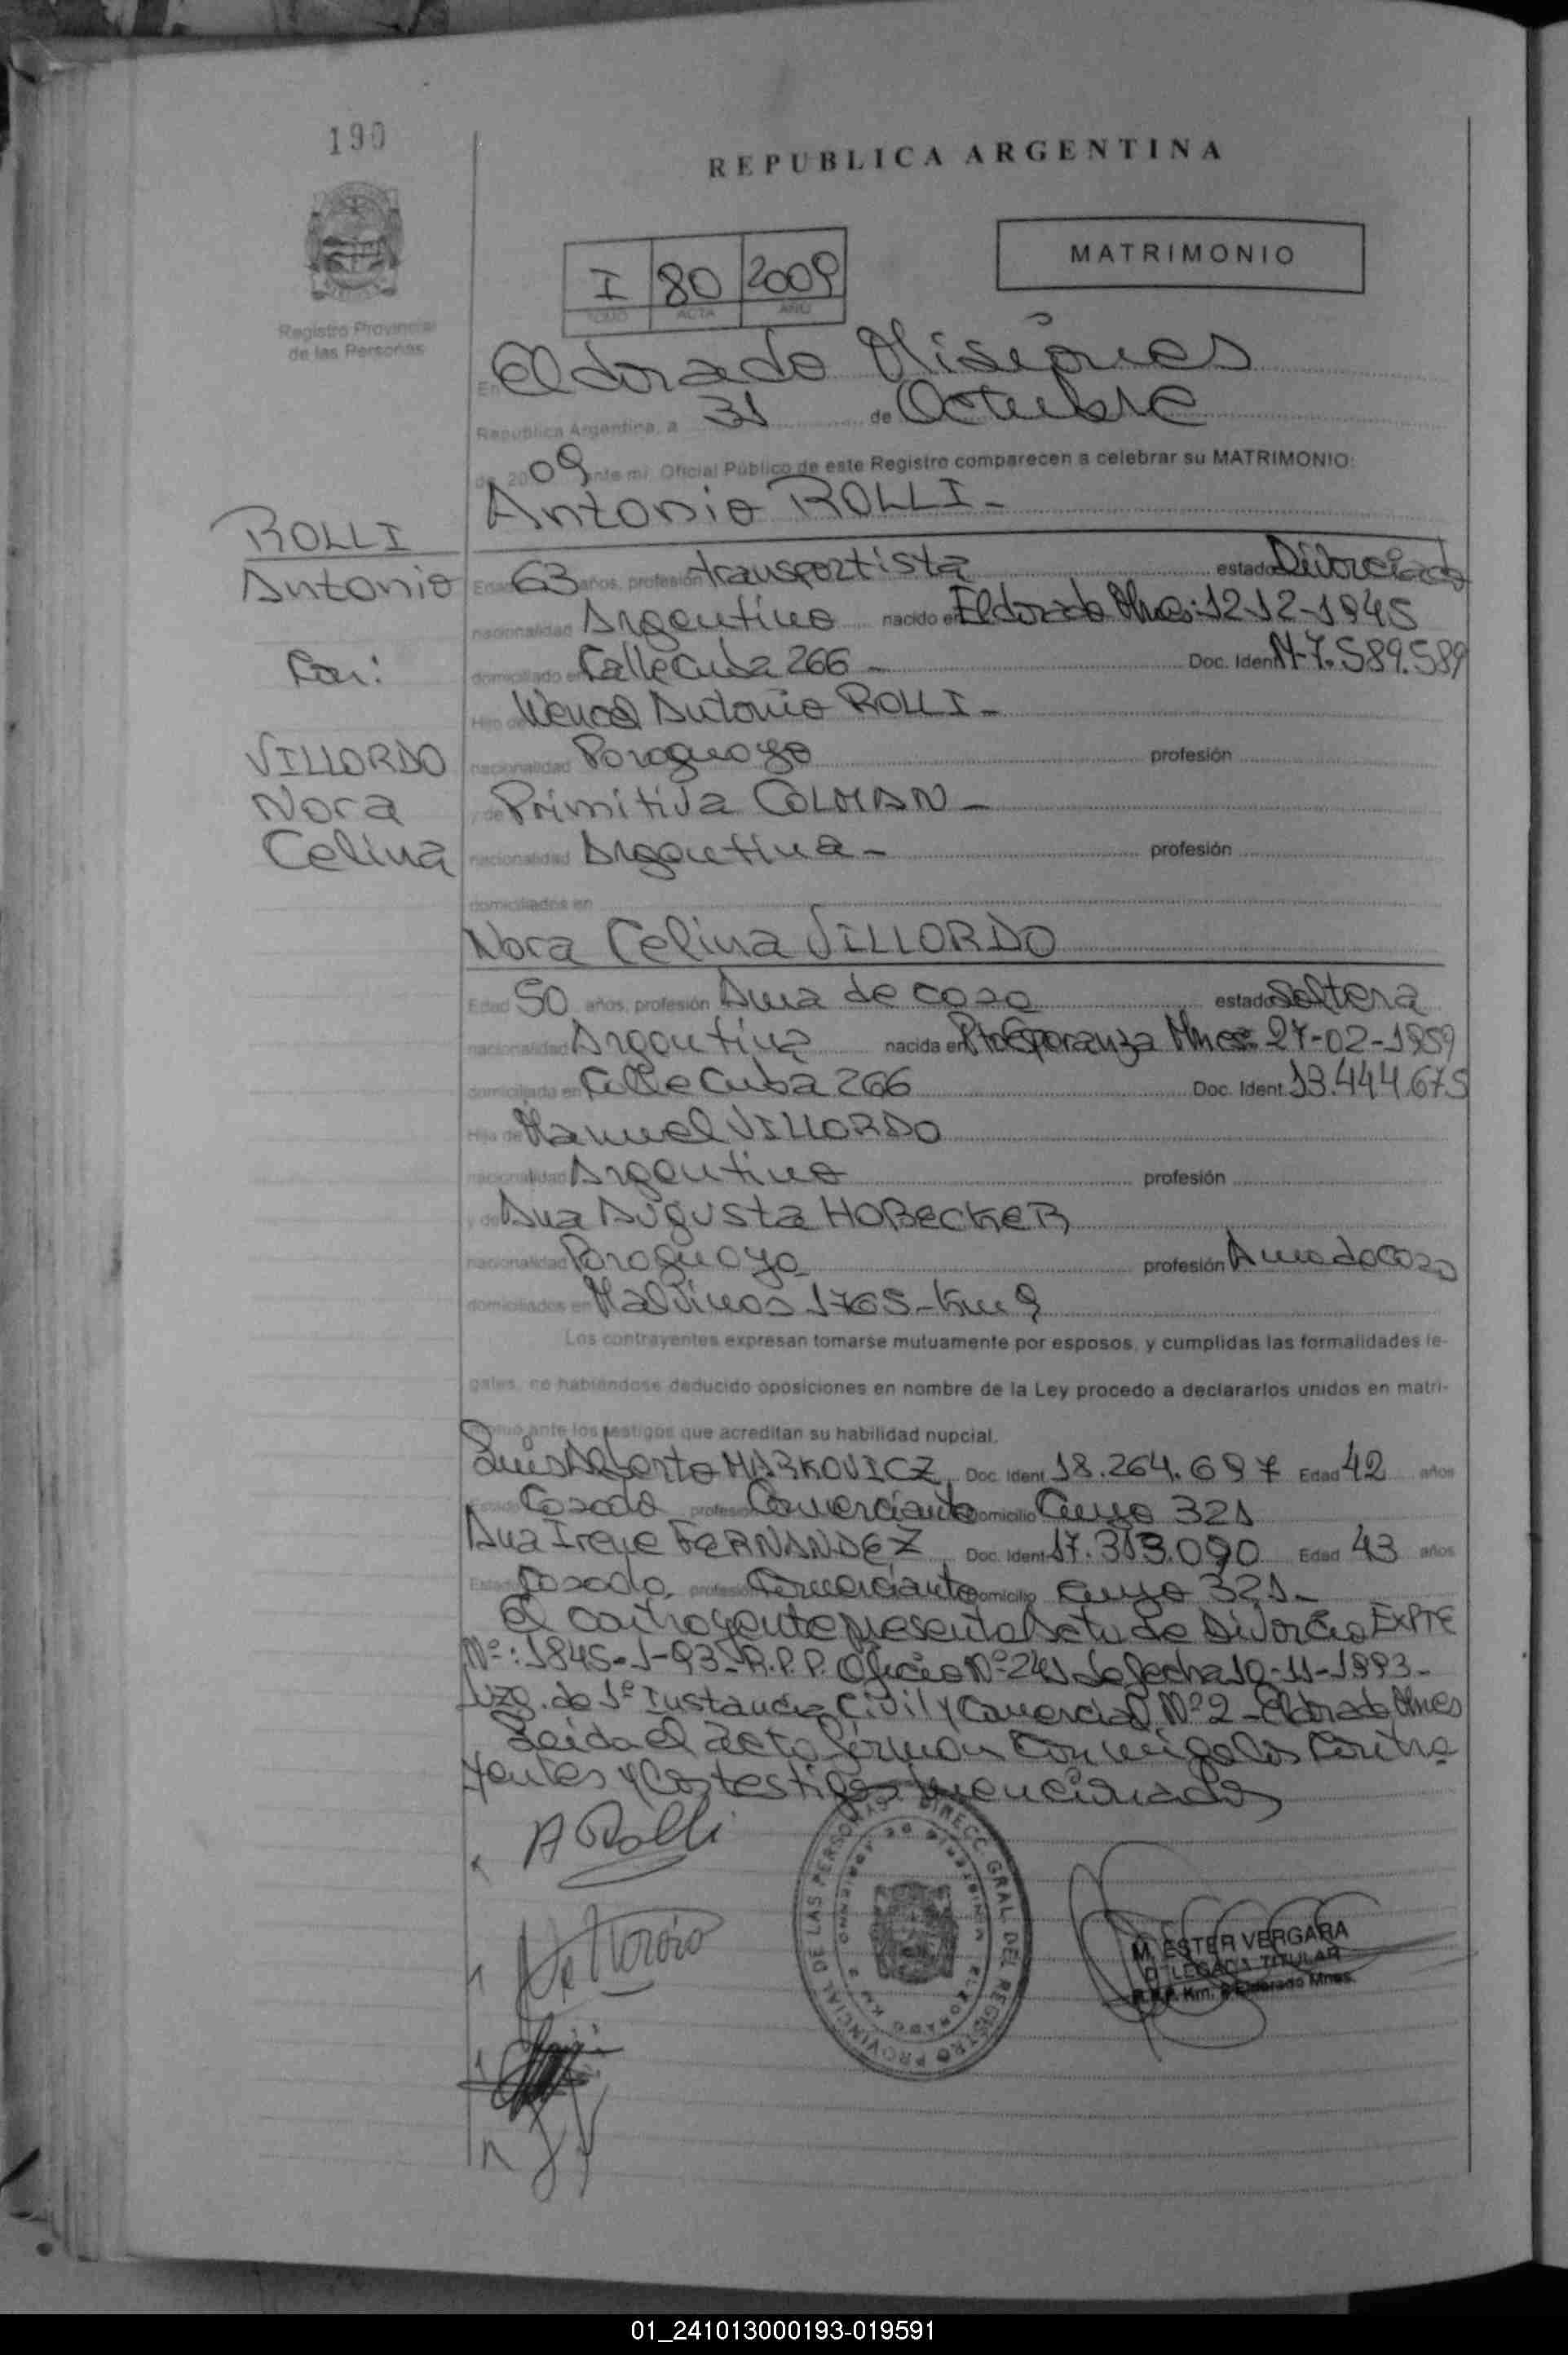 190
REPUBLICA ARGENTINA
MATRIMONIO
I 80 2009
TOMO ACTA AÑO
Registro Provincial
de las Personas
En Eldorado Misiones
República Argentina, a 31 de Octubre
de 2009 ante mi, Oficial Público de este Registro comparecen a celebrar su MATRIMONIO:
Antonio ROLLI-
ROLLI
Antonio
Con:
VILLORDO
Nora
Celina
Edad 63 años, profesión transportista estado Divorciado
nacionalidad Argentino nacido en Eldorado Mnes: 12-12-1945
domiciliado en Calle Cuba 266 - Doc. Ident. M-7.589.589
Hijo de Antonio ROLLI-
nacionalidad Paraguayo profesión
y de Primitiva COLMAN-
nacionalidad Argentina- profesión
domiciliados en
Nora Celina VILLORDO
Edad 50 años, profesión Ama de casa estado Soltera
nacionalidad Argentina nacida en Pto Esperanza Mnes 27-02-1959
domiciliada en Calle Cuba 266 Doc. Ident. 13.444.675
Hija de Manuel VILLORDO
nacionalidad Argentino profesión
y de Ana Augusta HOBECKER
nacionalidad Paraguaya profesión Ama de casa
domiciliados en Malvinas 1765-Km 9
Los contrayentes expresan tomarse mutuamente por esposos, y cumplidas las formalidades le-
gales, no habiéndose deducido oposiciones en nombre de la Ley procedo a declararlos unidos en matri-
monio ante los testigos que acreditan su habilidad nupcial.
Luis Alberto MARKOVICZ Doc. Ident. 18.264.697 Edad 42 años
Estado Casado profesión Comerciante Domicilio Cuyo 321
Ana Irene FERNANDEZ Doc. Ident. 17.313.090 Edad 43 años
Estado Casada profesión Comerciante Domicilio Cuyo 321-
El contrayente presenta Acta de Divorcio EXPTE
Nº: 1845-1-93-R.P.P. Oficio Nº 241 de fecha 10-11-1993-
Juzg. de 1º Instancia Civil y Comercial Nº 2 - Eldorado Mnes
Leida el acta firman conmigo los contra
yentes y los testigos mencionados
A Rolli
DIRECC. GRAL. DEL REGISTRO PROVINCIAL DE LAS PERSONAS
M. ESTER VERGARA
DELEGADA TITULAR
R.P.P. Km. 9 Eldorado Mnes.
01_241013000193-019591